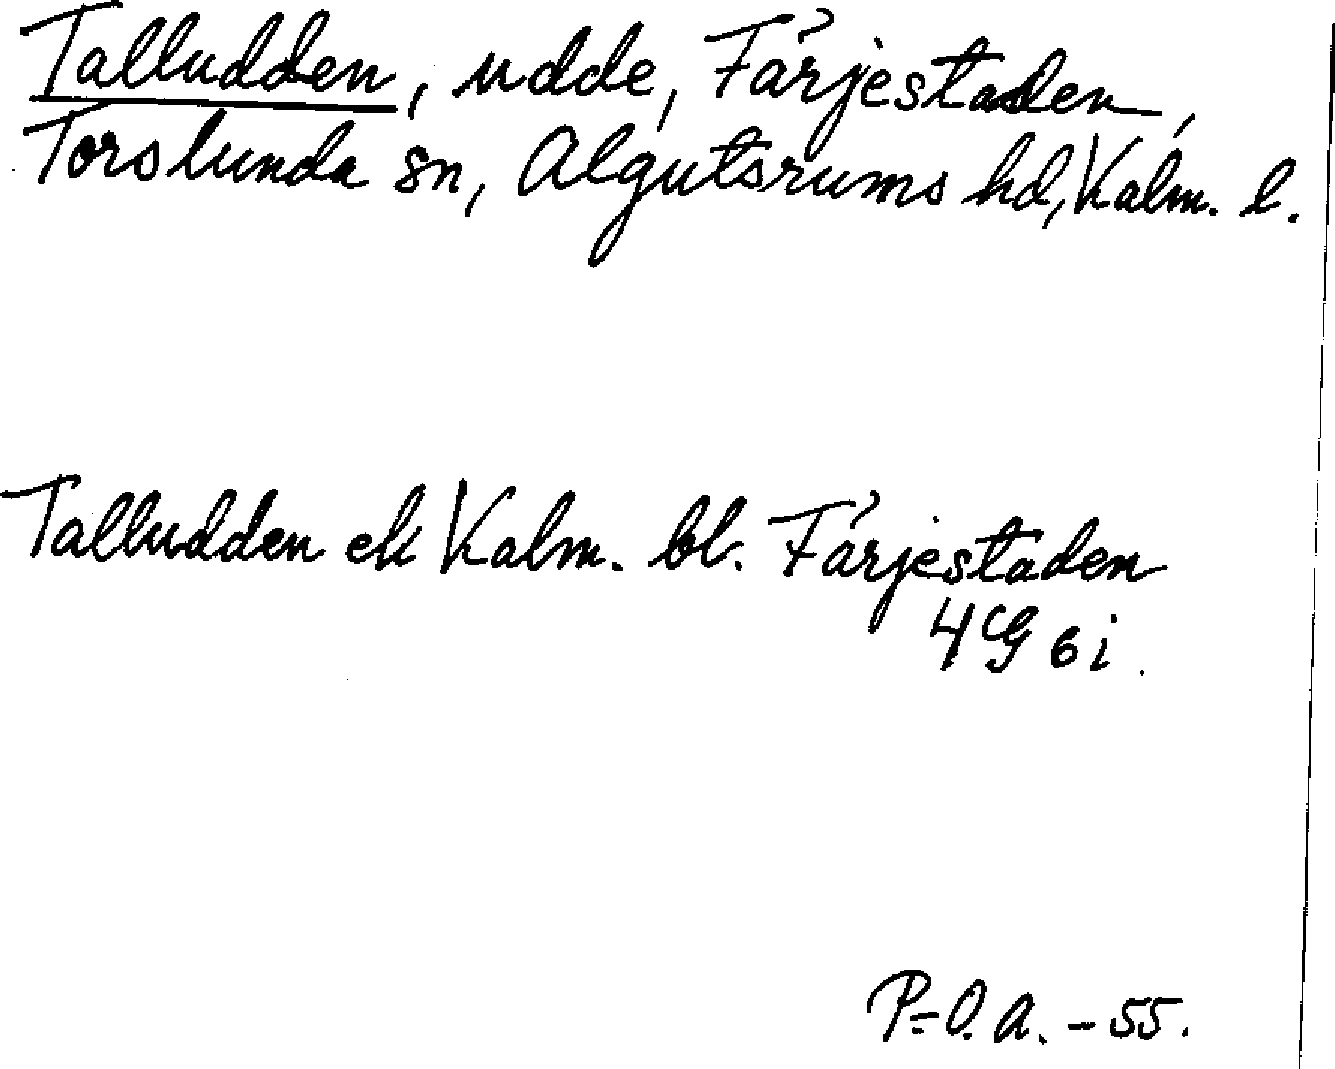 Talludden, udde, Färjestaden,
Torslunda sn, Algutsrums hd, Kalm. l.
Talludden ek Kalm. bl. Färjestaden
4G 6i.
P-O. A. - 55.